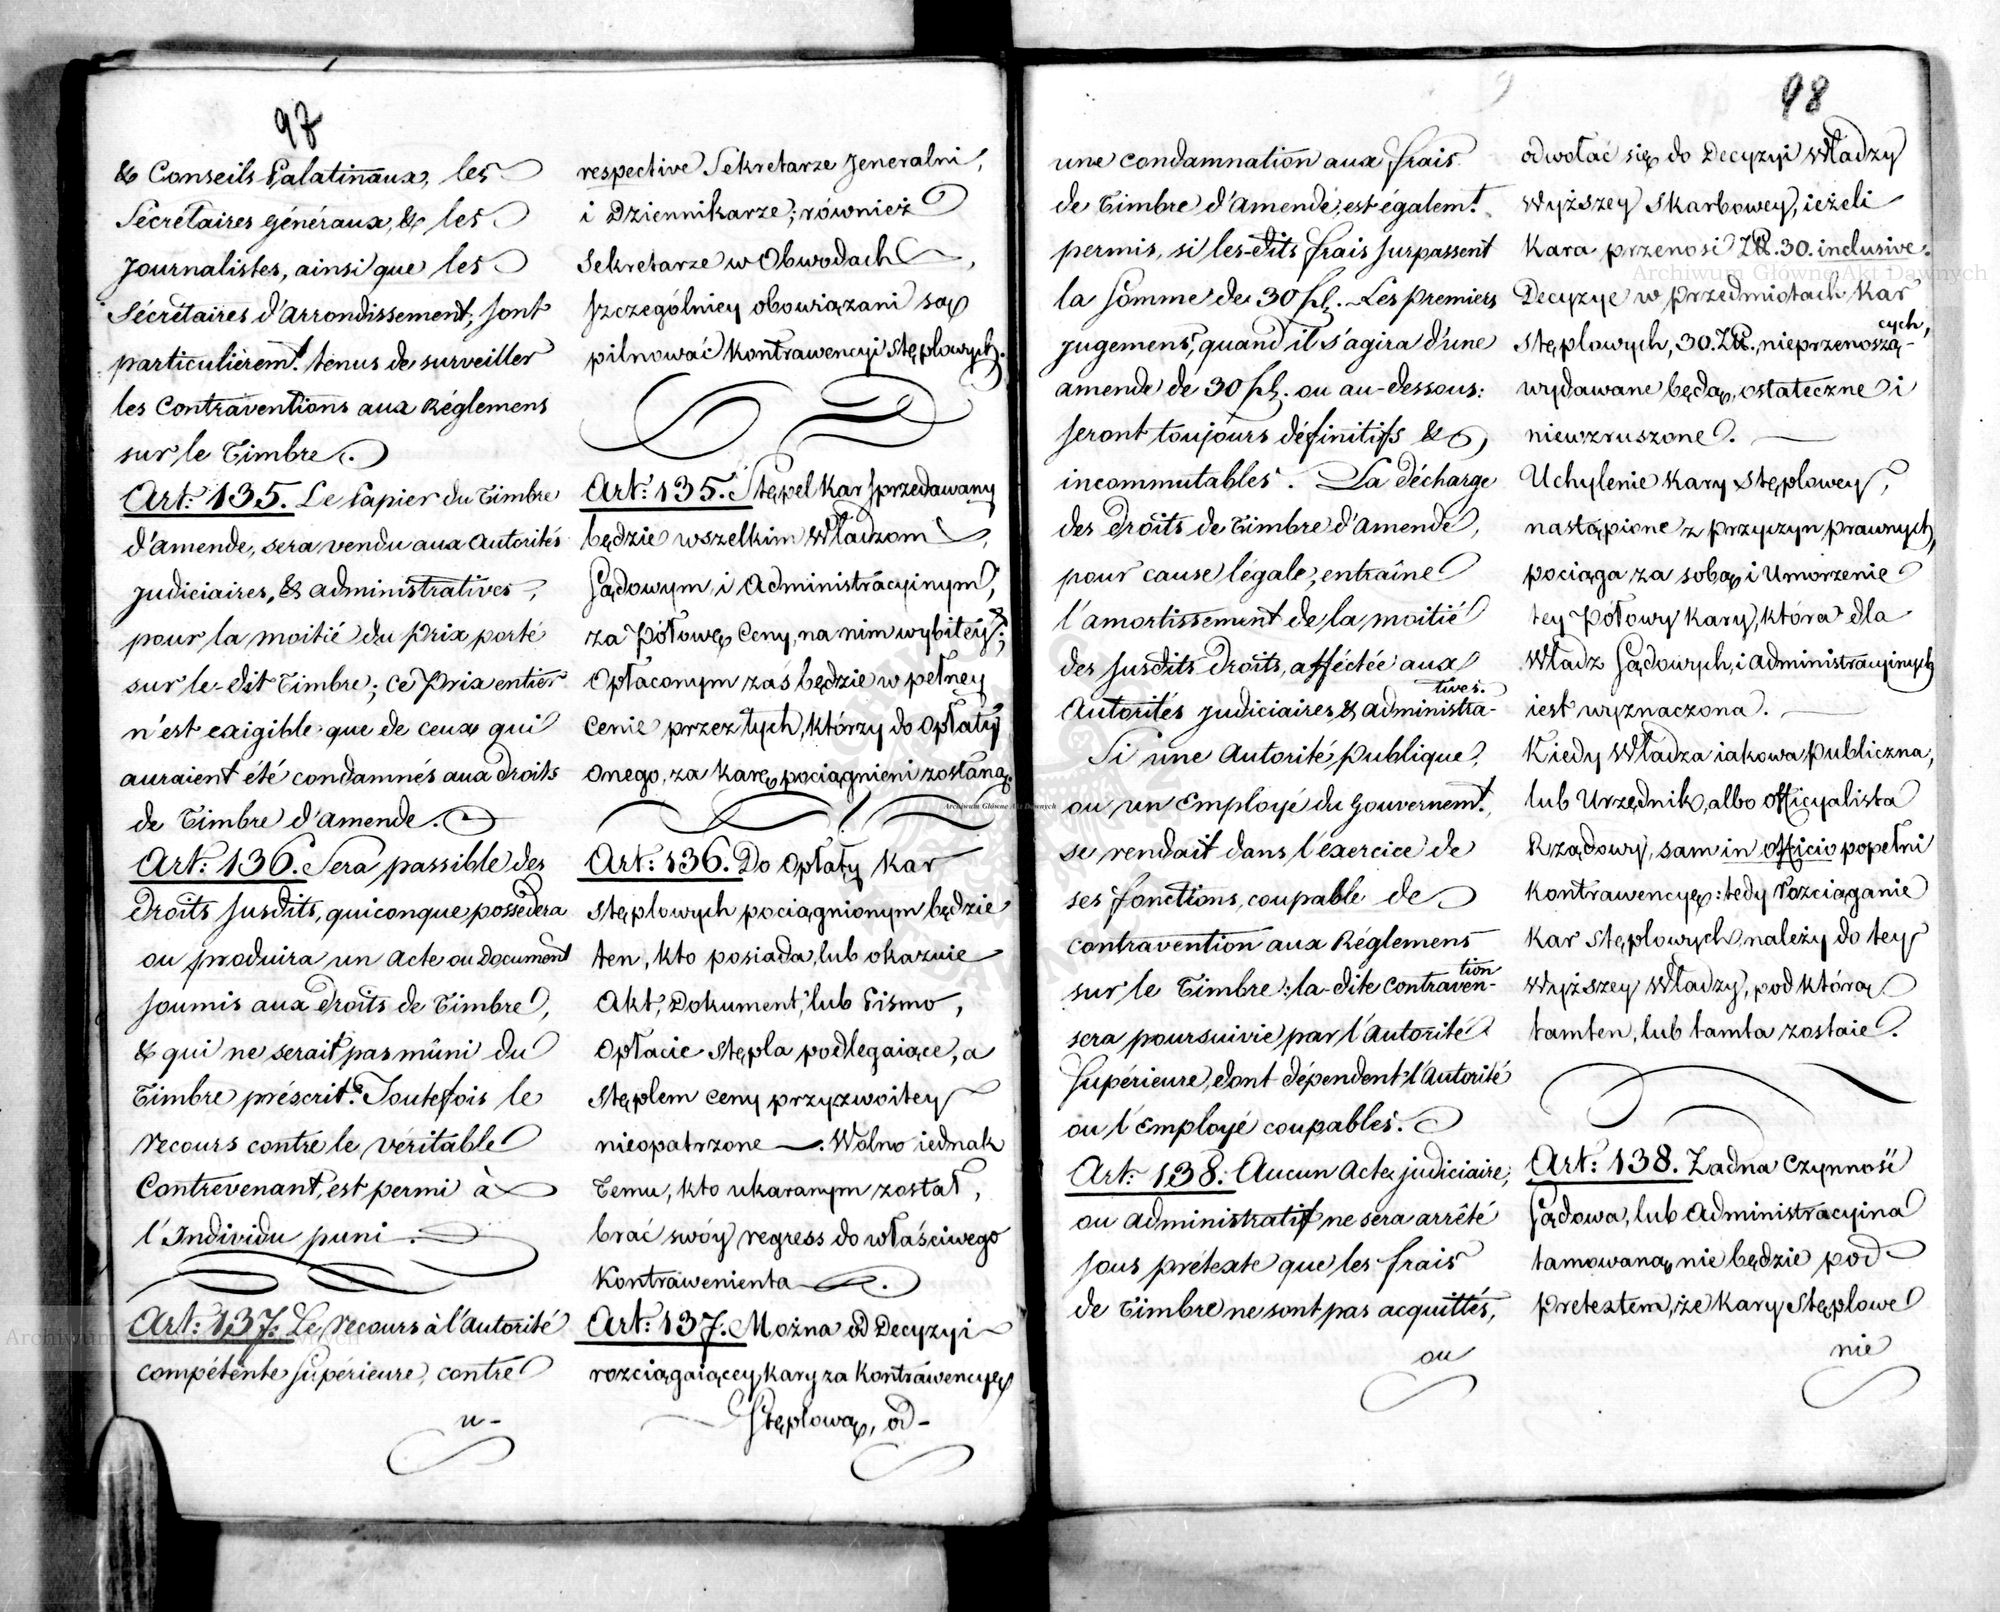 97
& Conseils Palatinaux, les
Sécrétaires généraux, & les
Journalistes, ainsi que les
Sécrétaires d'arrondissement, sont
particulièremt. tenus de surveiller
les Contraventions aux Réglemens
sur le Timbre.
Art: 135. Le Papier du Timbre
d'amende, sera vendu aux Autorités
judiciaires, & administratives,
pour la moitié du prix porté
sur le-dit Timbre; ce prix entier
n'est exigible que de ceux qui
auraient été condamnés aux droits
de Timbre d'amende.
Art: 136. Sera passible des
droits susdits, quiconque possèdera
ou produira un Acte ou Document
soumis aux droits de Timbre,
& qui ne serait pas mûni du
Timbre préscrit. Toutefois le
recours contre le véritable
Contrevenant, est permi à
l'Individu puni.
Art: 137. Le recours à l'Autorité
compétente supérieure, contre
u-
respective Sekretarze Jeneralni,
i Dziennikarze; również
Sekretarze w Obwodach,
szczególniey obowiązani są
pilnować kontrawencyi stęplowych.
Art: 135. Stępel kar sprzedawany
będzie wszelkim Władzom,
Sądowym, i Administracyinym,
za połowę Ceny, na nim wybitey;
Opłaconym zaś będzie w pełney
cenie przez tych, którzy do opłaty
onego, za karę pociągnieni zostaną.
Art: 136. Do opłaty kar
stęplowych pociągnionym będzie
ten, kto posiada, lub okazuie
Akt, Dokument, lub Pismo,
opłacie stępla podlegaiące, a
stęplem ceny przyzwoitey
nieopatrzone. Wolno iednak
Temu, kto ukaranym został,
brać swóy regress do właściwego
Kontrawenienta.
Art: 137. Można od Decyzyi
rozciągaiącey kary za Kontrawencyę
Stęplową, od-
98
une condamnation aux frais
de Timbre d'amende, est égalemt.
permis, si les-dits frais surpassent
la somme de 30 fl. Les premiers
jugemens, quand il s'agira d'une
amende de 30 fl. ou au-dessous:
seront toujours définitifs &
incommutables. La décharge
des droits de Timbre d'amende,
pour cause légale, entraîne
l'amortissement de la moitié
des susdits droits, afféctée aux
Autorités judiciaires & administra-
tives.
Si une Autorité publique,
ou un Employé du Gouvernemt.
se rendait dans l'exercice de
ses fonctions, coupable de
contravention aux Réglemens
sur le Timbre: la-dite contraven-
tion
sera poursuivie par l'Autorité
supérieure, dont dépendent l'Autorité
ou l'Employé coupables.
Art: 138. Aucun Acte judiciaire,
ou administratif ne sera arrêté
sous prétexte que les frais
de Timbre ne sont pas acquittés,
ou
odwołać się do Decyzyi Władzy
Wyższey Skarbowey, ieżeli
Kara przenosi Zł. 30. inclusive.
Decyzye w przedmiotach kar
stęplowych, 30. Zł., nieprzenoszą-
cych,
wydawane będą, ostateczne i
niewzruszone.
Uchylenie kary stęplowey,
nastąpione z przyczyn prawnych,
pociąga za sobą i umorzenie
tey połowy kary, która dla
Władz Sądowych, i administracyinych
iest wyznaczona.
Kiedy Władza iakowa publiczna,
lub Urzędnik, albo officyalista
Rządowy, sam in officio popełni
kontrawencyę: tedy rozciąganie
kar stęplowych, należy do tey
Wyższey Władzy, pod którą
tamten, lub tamta zostaie.
Art: 138. Żadna czynność
Sądowa, lub administracyina
tamowaną, nie będzie pod
pretextem, że kary stęplowe
nie
Archiwum Główne Akt Dawnych
Archiwum Główne Akt Dawnych